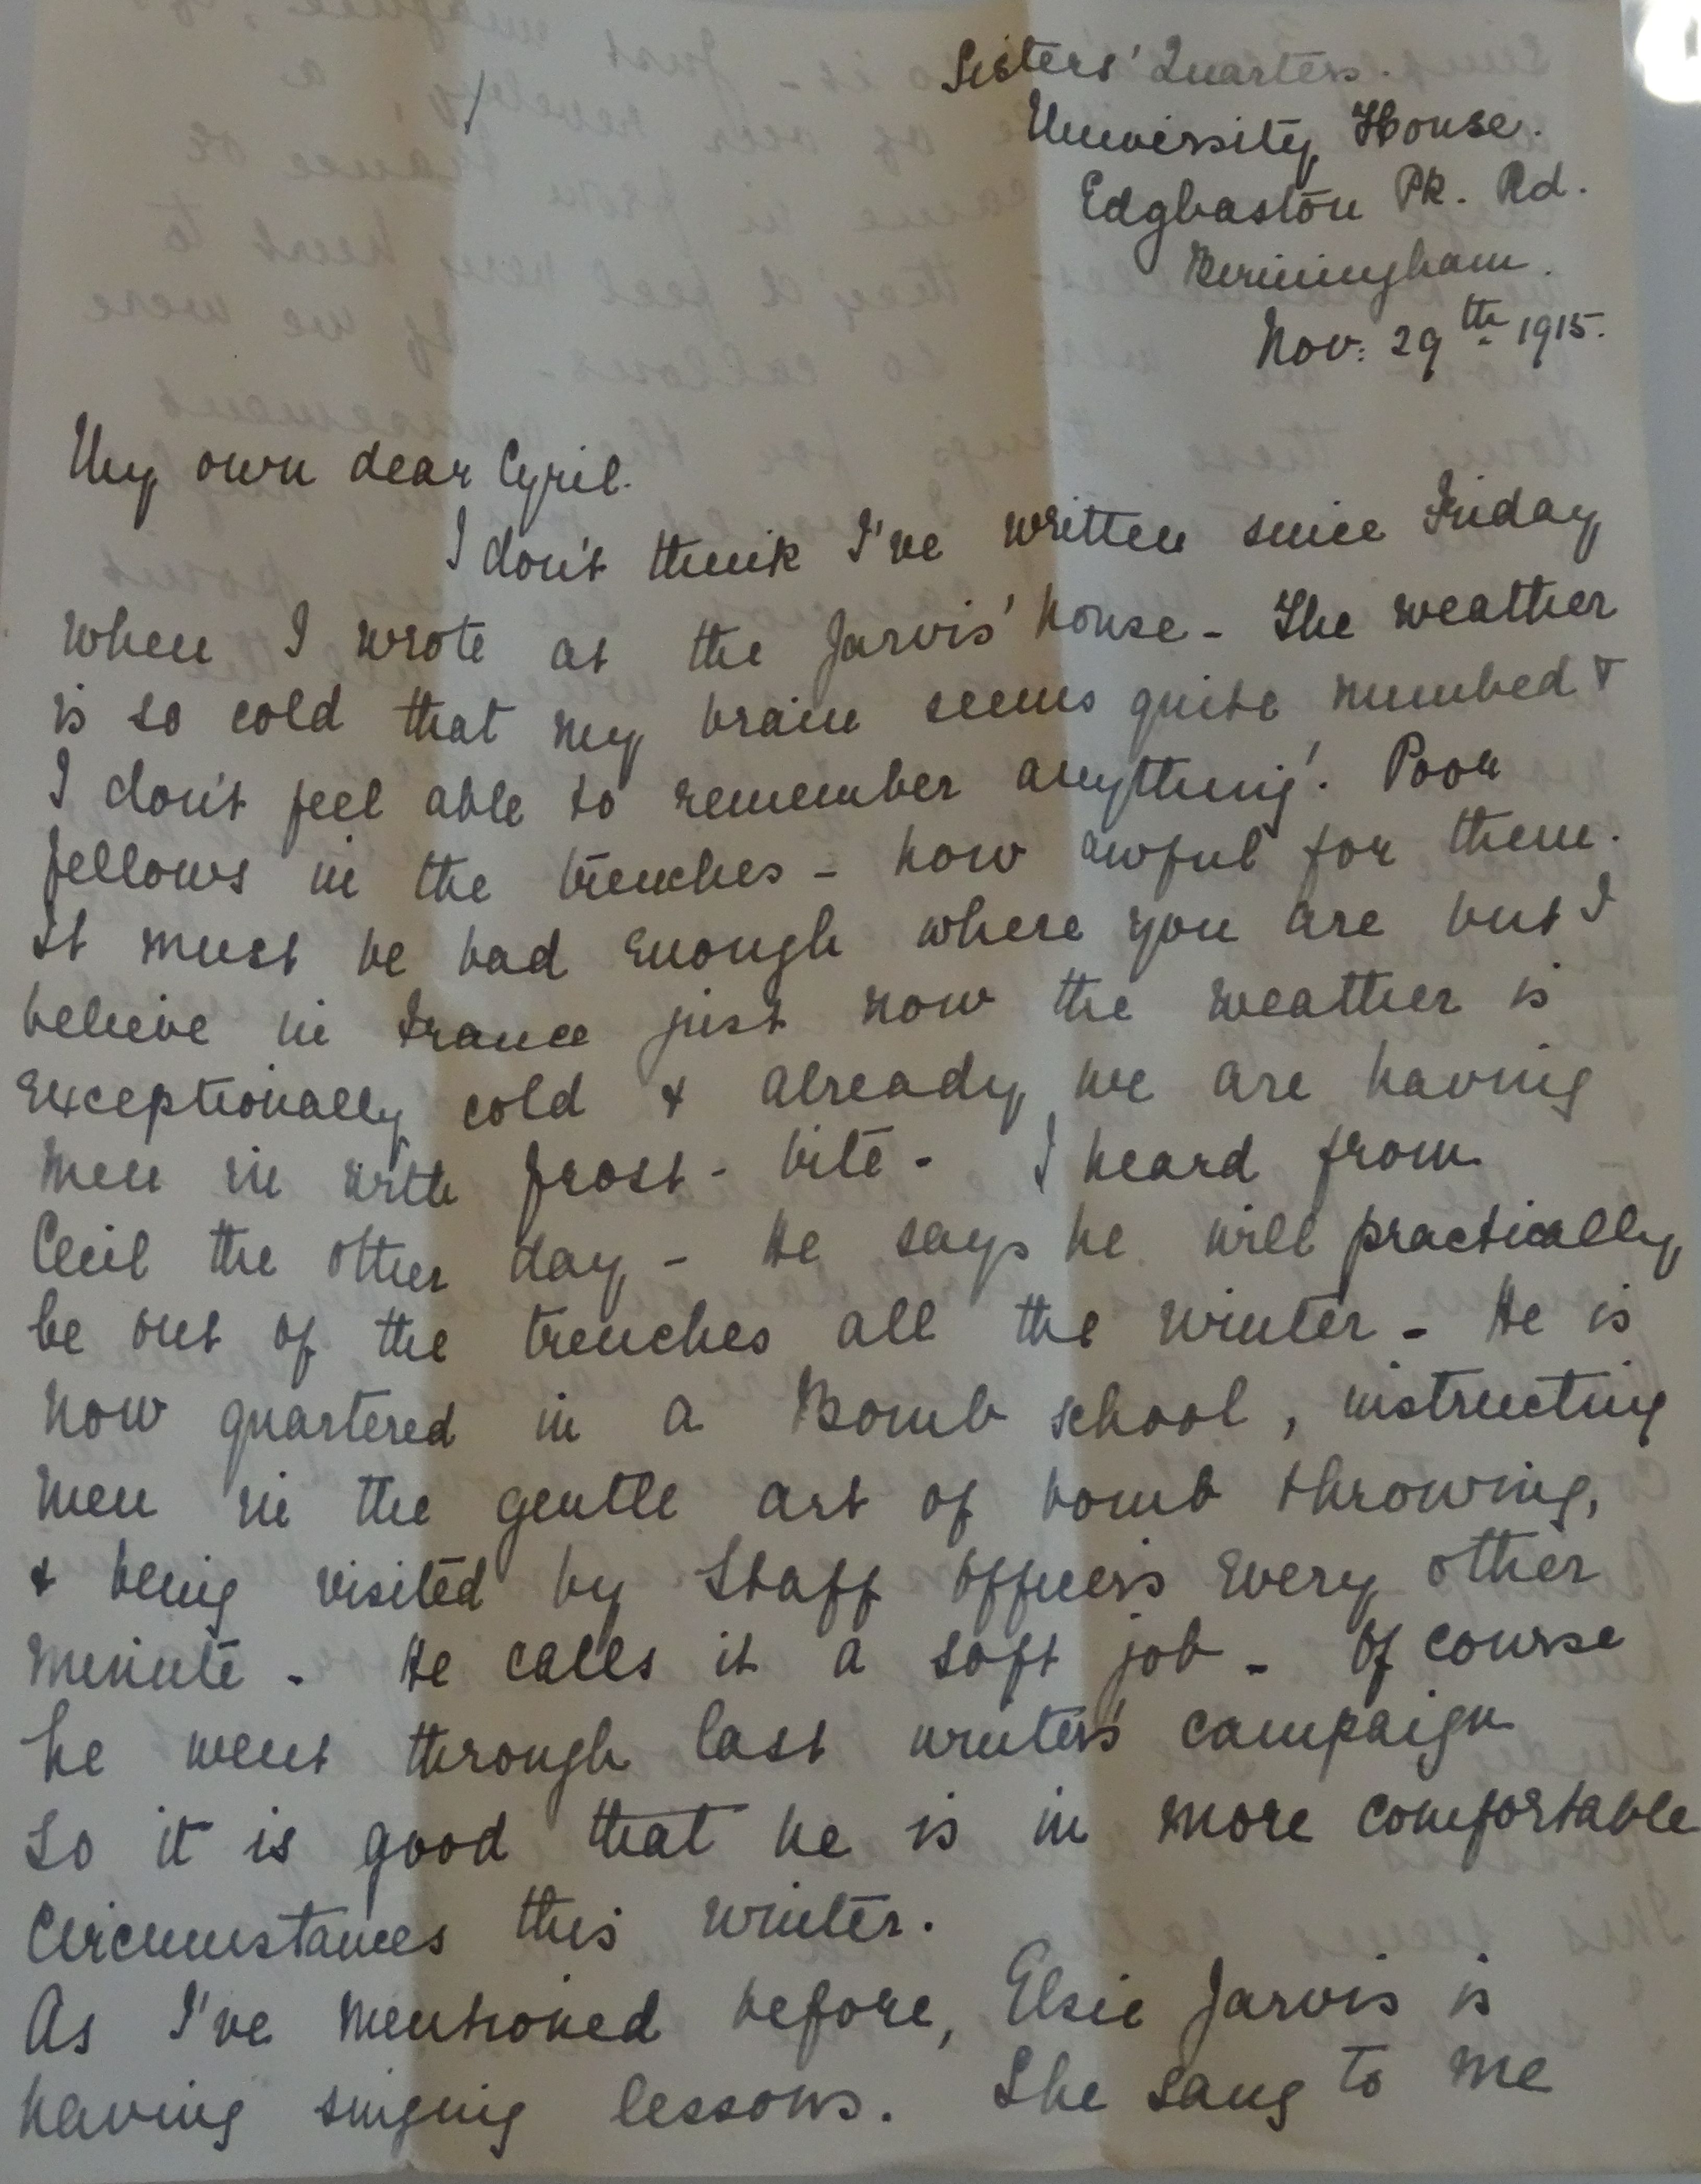 Sisters' Quarters.
University House.
Edgbaston Pk. Rd.
Birmingham.
Nov: 29th 1915.
My own dear Cyril.
I don't think I've written since Friday
when I wrote at the Jarvis' house - The weather
is so cold that my brain seems quite numbed &
I don't feel able to remember anything! Poor
fellows in the trenches - how awful for them.
It must be bad enough where you are but I
believe in France just now the weather is
exceptionally cold & already we are having
men in with frost-bite - I heard from
Cecil the other day - He says he will practically
be out of the trenches all the winter - He is
now quartered in a Bomb school, instructing
men in the gentle art of bomb throwing,
& being visited by Staff Officers every other
minute - He calls it a soft job - Of course
he went through last winter's campaign
so it is good that he is in more comfortable
circumstances this winter.
As I've mentioned before, Elsie Jarvis is
having singing lessons. She sang to me